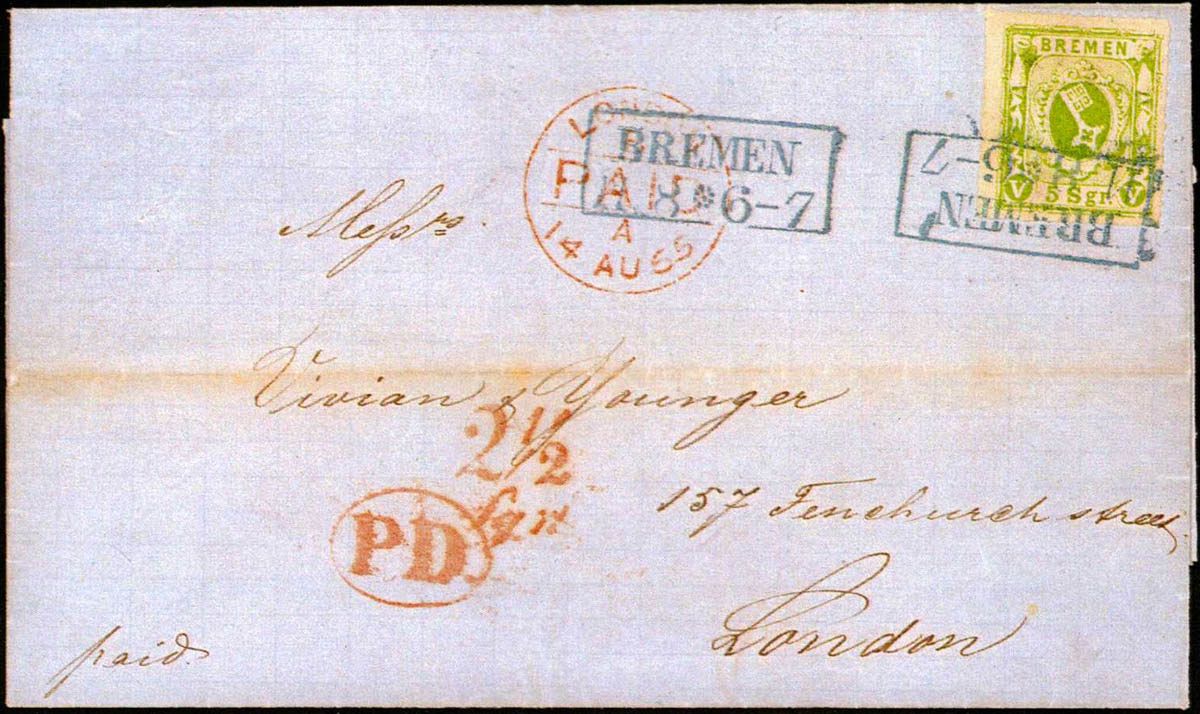 BREMEN
V 5 Sgr. V
LONDON
PAID
A
14 AU 65
BREMEN
11. 8 * 6-7
BREMEN
11. 8 * 6-7
Messrs.
Vivian & Younger
2 1/2
sgr
P.D.
157 Fenchurch street
London
paid.